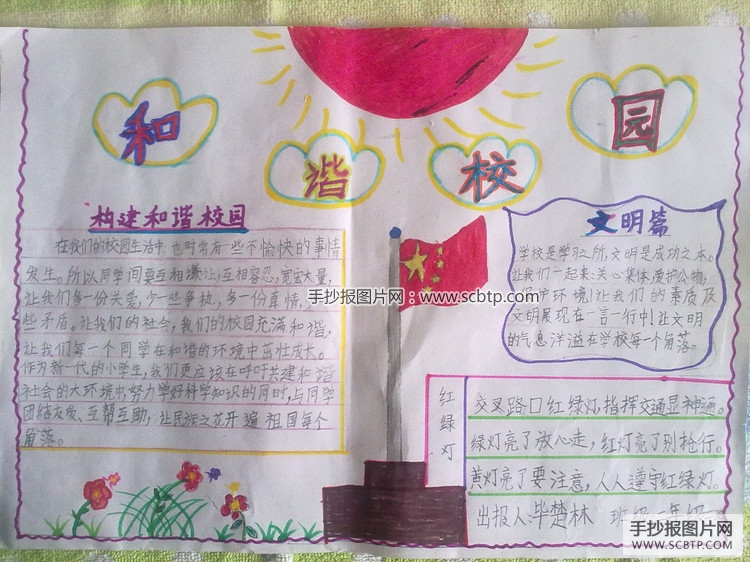 和
谐
校
园
构建和谐校园
在我们的校园生活中,也时常有一些不愉快的事情
发生。所以同学间要互相谦让,互相容忍,宽宏大量,
让我们多一份关爱,少一些争执,多一份真情,少一
些矛盾。让我们的社会,我们的校园充满和谐,
让我们每一个同学在和谐的环境中茁壮成长。
作为新一代的小学生,我们更应该在呼吁共建和谐
社会的大环境中,努力学好科学知识的同时,与同学
团结友爱、互帮互助,让民族之花开遍祖国每个
角落。
文明篇
学校是学习之所,文明是成功之本。
让我们一起来:关心集体,爱护公物,
保护环境!让我们的素质及
文明展现在一言一行中!让文明
的气息洋溢在学校每一个角落。
手抄报图片网:www.scbtp.com
红绿灯
交叉路口红绿灯,指挥交通显神通。
绿灯亮了放心走,红灯亮了别抢行。
黄灯亮了要注意,人人遵守红绿灯。
出报人:毕楚林 班级
手抄报图片网
WWW.SCBTP.COM